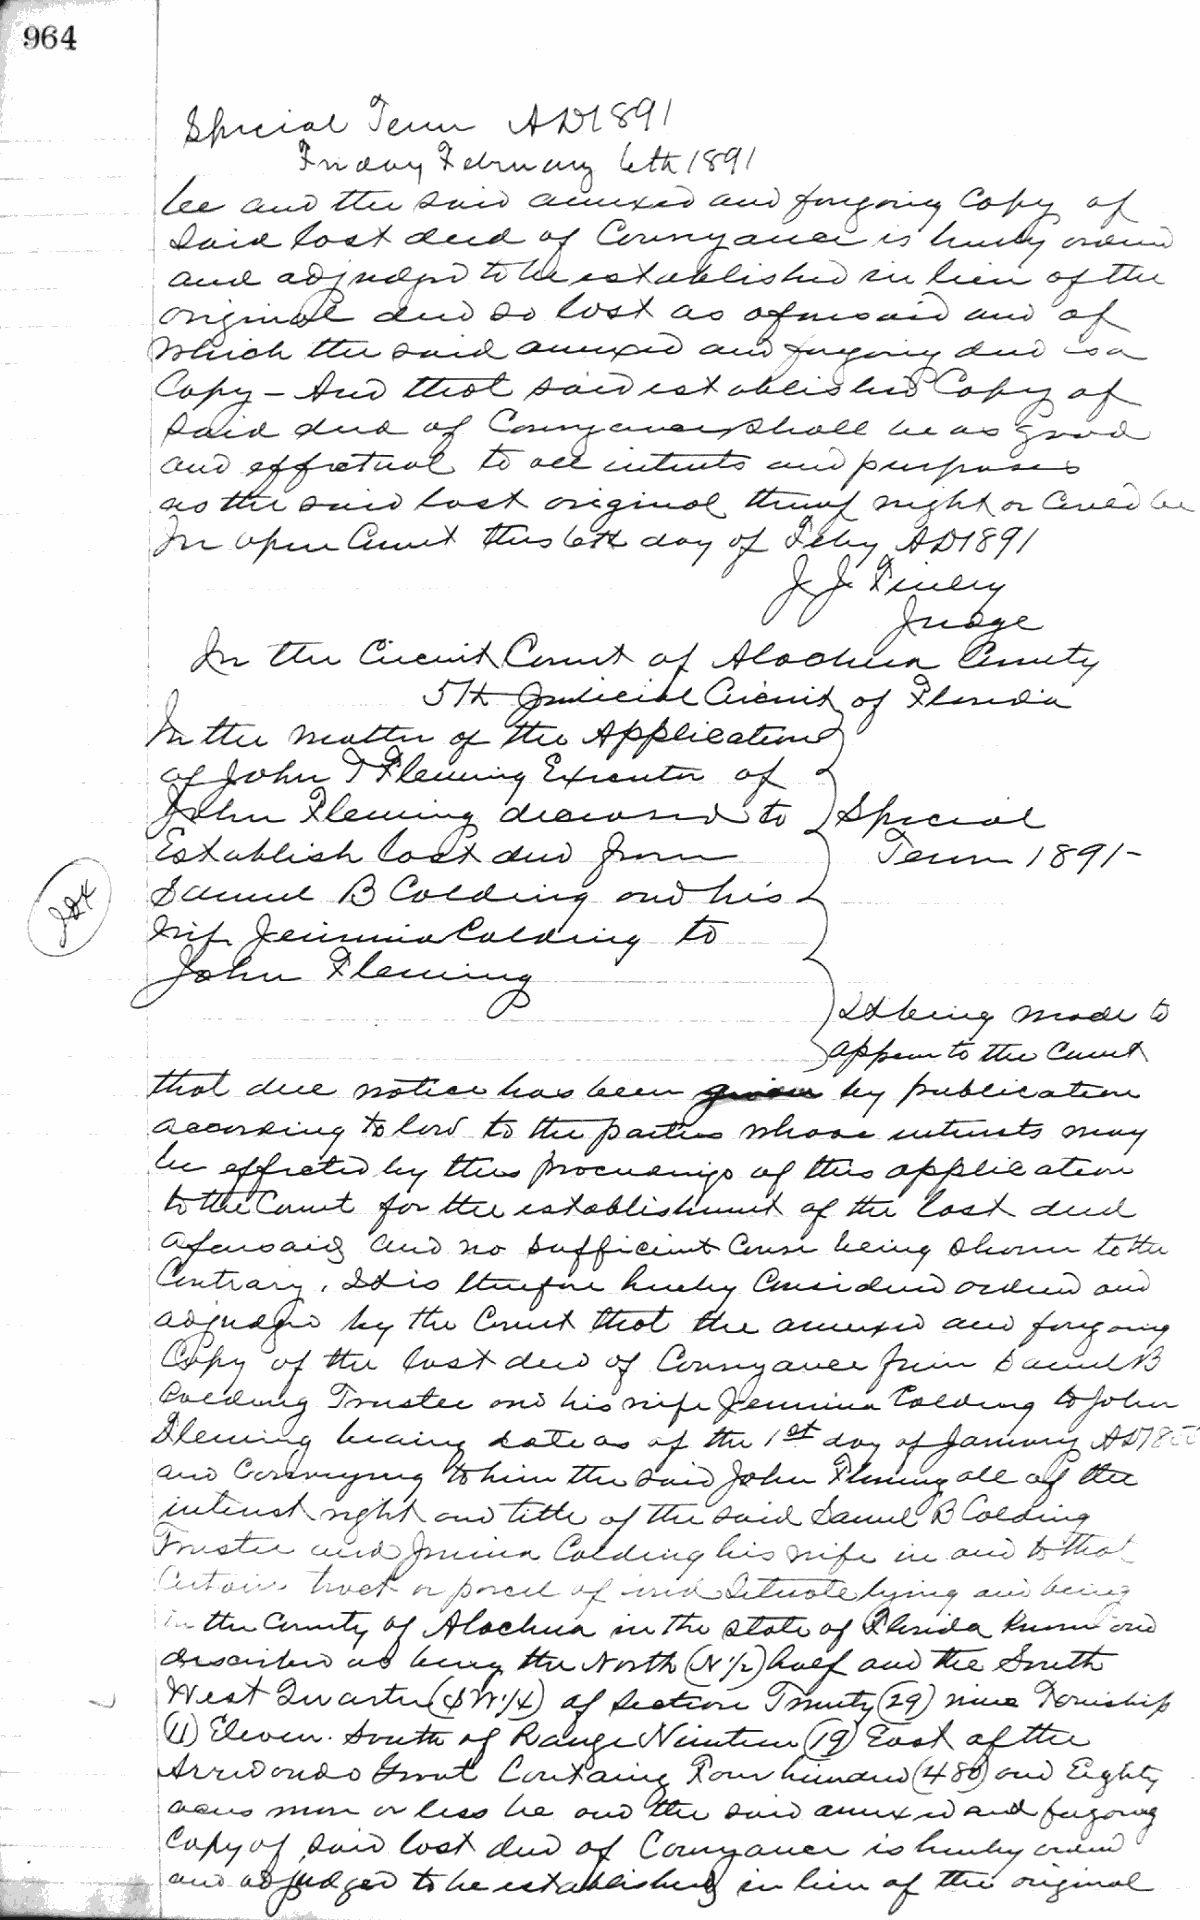 964
Special Term AD 1891
Friday February 6th 1891
be and the said annexed and forgoing Copy of
Said lost deed of Conveyance is hereby ordered
and adjudged to be established in lieu of the
original deed so lost as aforesaid and of
which the said annexed and forgoing deed is a
Copy - And that said established Copy of
said deed of Conveyance shall be as good
and effectual to all intents and purposes
as the said lost original thereof might or Could be
In open Court this 6th day of Feby AD 1891
J J Finley
Judge
In the Circuit Court of Alachua County
5th Judicial Circuit of Florida
In the matter of the Application
of John T Fleming Executor of
John Fleming deceased to
Establish lost deed from
Samuel B Colding and his
wife Jemima Colding to
John Fleming
Special
Term 1891-
It being made to
appear to the Court
that due notice has been given by publication
according to law to the parties whose interests may
be effected by this proceedings of this application
to the Court for the establishment of the lost deed
aforesaid and no sufficient Cause being shown to the
Contrary. It is therefore hereby Considered ordered and
adjudged by the Court that the annexed and forgoing
Copy of the lost deed of Conveyance from Samuel B
Colding Trustee and his wife Jemima Colding to John
Fleming bearing date as of the 1st day of January AD
and Conveying to him the said John Fleming all of the
interest right and title of the said Samuel B Colding
Trustee and Jemima Colding his wife in and to that
Certain tract or parcel of land Situate lying and being
in the County of Alachua in the state of Florida known and
described as being the North (N 1/2) half and the South
West Quarter (SW 1/4) of section Twenty (29) nine Township
(11) Eleven South of Range Nineteen (19) East of the
Arredondo Grant Containg Four hundred (480) and Eighty
acres more or less be and the said annexed and forgoing
Copy of said lost deed of Conveyance is hereby ordered
and adjudged to be established in lieu of the original